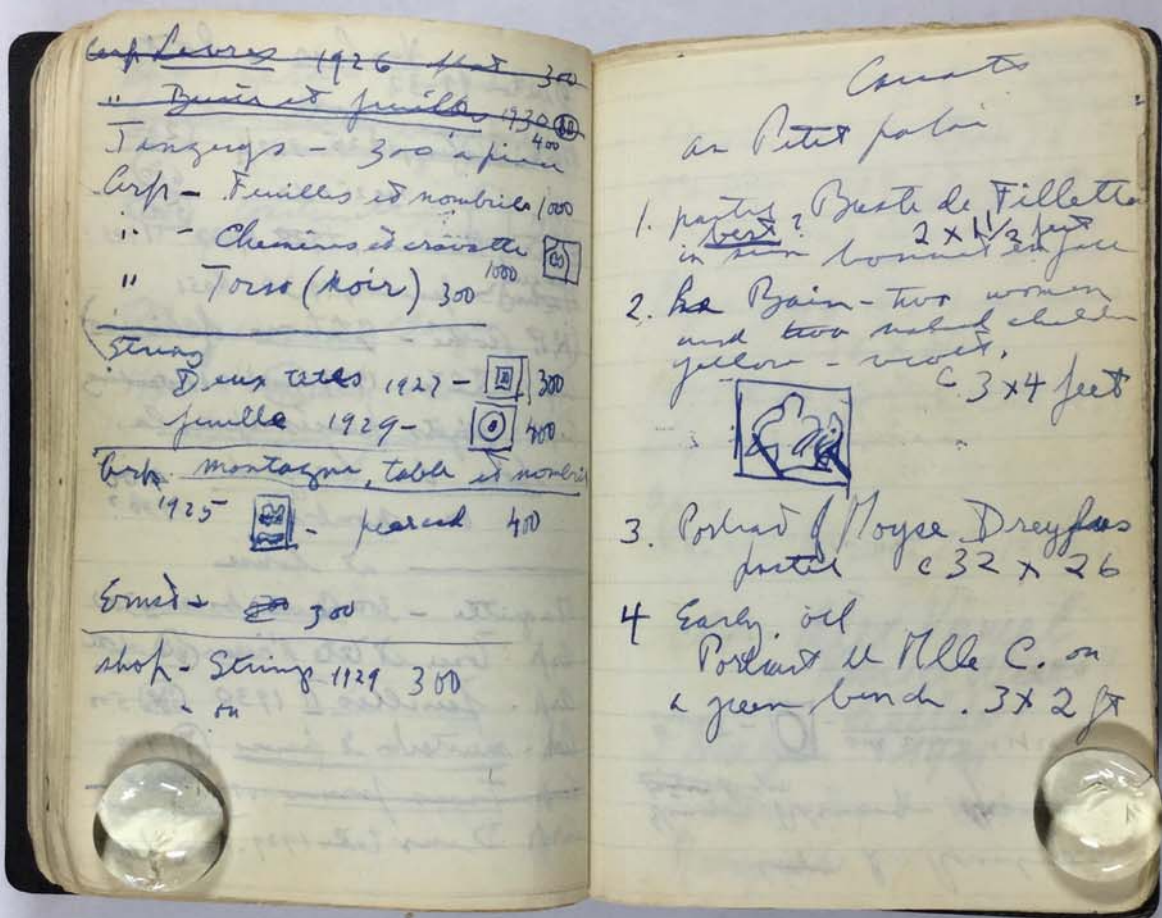 Arp Levres 1926 300
" Buste et feuilles 1930
400
Tanguys - 300 a piece
Arp - Feuilles et nombrils 1000
" - Chemises et cravatte
1000
" Torso (Noir) 300
String
Deux tetes 1927 - 300
feuille 1929 - 400
Arp. montagne, table et nombril
1925 - 400
Ernst - 300
shop - String 1929 300
- on
Cassatts
au Petit palais
1. pastel Buste de Fillette
best? 2 x 1 1/2 feet
in sun bonnet en face
2. Le Bain - two women
and two naked children
yellow - violet.
C. 3 x 4 feet
3. Portrait of Moyse Dreyfus
pastel c 32 x 26
4 Early. oil
Portrait de Mlle C. on
a green bench. 3 x 2 ft